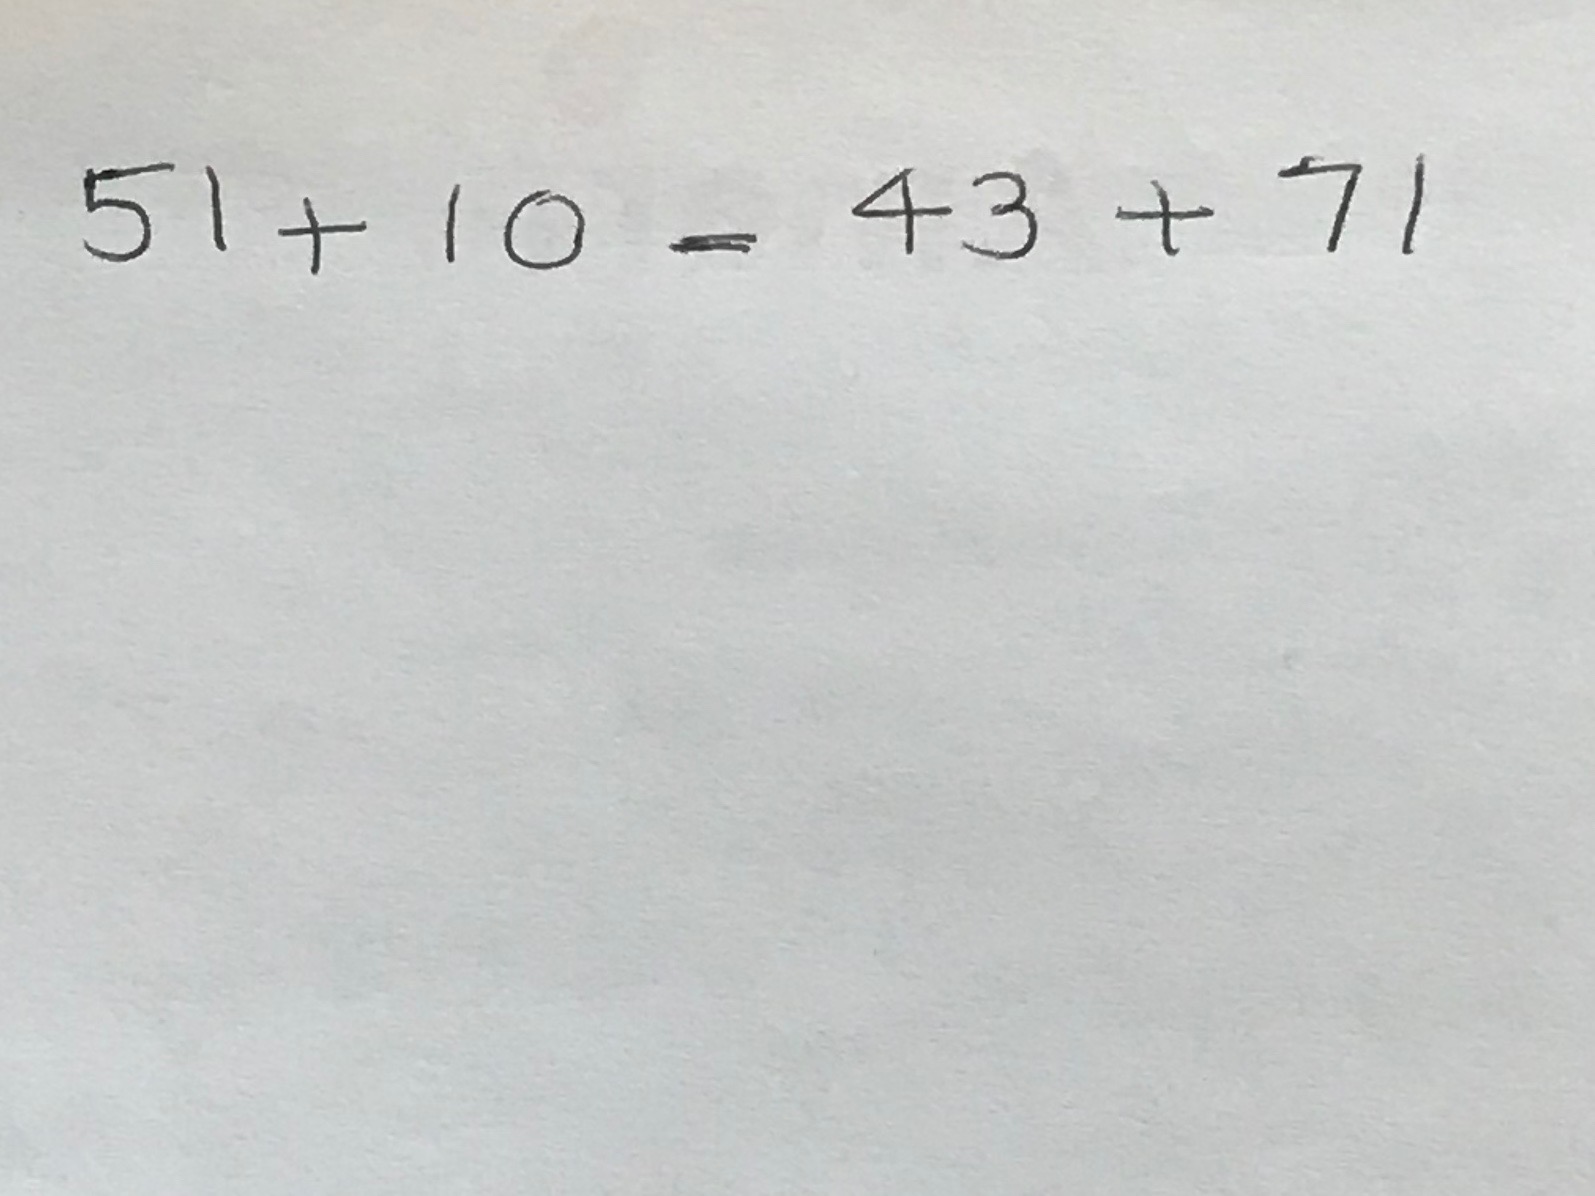 51 + 10 - 43 + 71